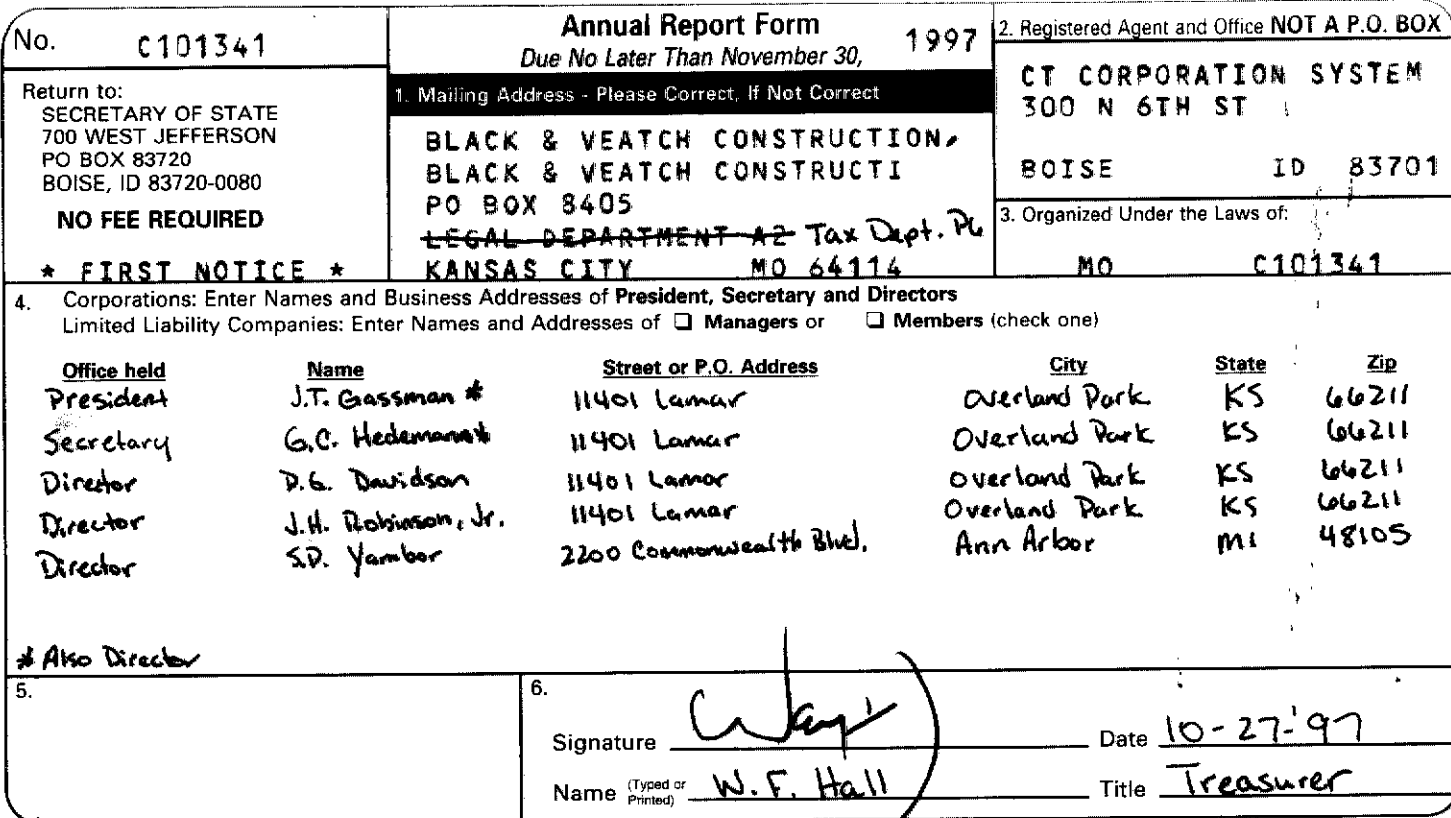 No. C101341
Return to:
SECRETARY OF STATE
700 WEST JEFFERSON
PO BOX 83720
BOISE, ID 83720-0080
NO FEE REQUIRED
* FIRST NOTICE *
Annual Report Form 1997
Due No Later Than November 30,
1. Mailing Address - Please Correct, If Not Correct
BLACK & VEATCH CONSTRUCTION,
BLACK & VEATCH CONSTRUCTI
PO BOX 8405
LEGAL DEPARTMENT A2 Tax Dept.
KANSAS CITY MO 64114
2. Registered Agent and Office NOT A P.O. BOX
CT CORPORATION SYSTEM
300 N 6TH ST
BOISE ID 83701
3. Organized Under the Laws of:
MO C101341
4. Corporations: Enter Names and Business Addresses of President, Secretary and Directors
Limited Liability Companies: Enter Names and Addresses of ❑ Managers or ❑ Members (check one)
Office held Name Street or P.O. Address City State Zip
President J.T. Gassman * 11401 Lamar Overland Park KS 66211
Secretary G.C. Hedemann* 11401 Lamar Overland Park KS 66211
Director D.G. Davidson 11401 Lamar Overland Park KS 66211
Director J.H. Robinson, Jr. 11401 Lamar Overland Park KS 66211
Director S.D. Yambor 2200 Commonwealth Blvd. Ann Arbor MI 48105
* Also Director
5.
6.
Signature
Date 10-27-'97
Name (Typed or Printed) W. F. Hall
Title Treasurer